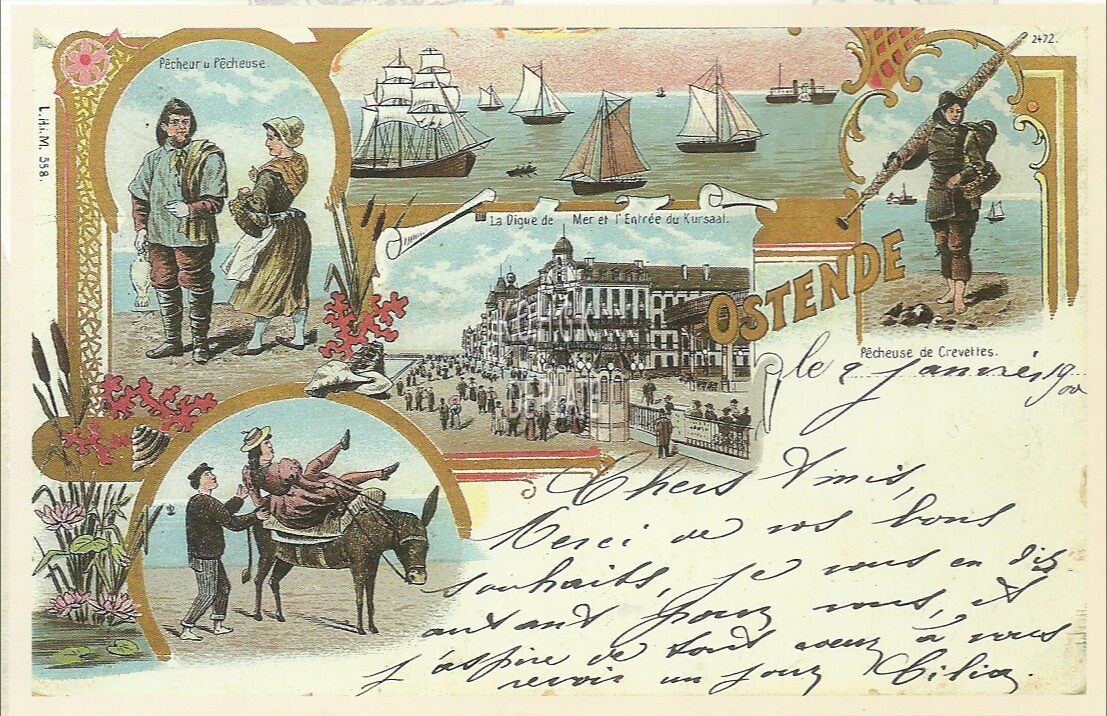 2472.
Pêcheur u Pêcheuse.
L.H.i.M. 558.
La Digue de Mer et l'Entrée du Kursaal.
OSTENDE
Pêcheuse de Crevettes.
le 2 Janvier 1900
Chers Amis,
Merci de vos bons
souhaits, je vous en dis
autant pour vous, et
j'aspire de tout coeur à vous
revoir un jour Cilia.